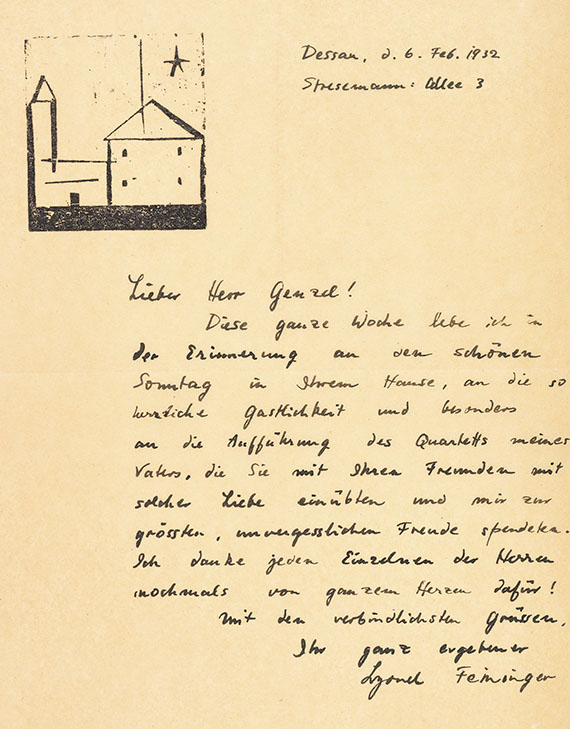 Dessau, d. 6. Feb. 1932
Stresemann: Allee 3
Lieber Herr Genzel!
Diese ganze Woche lebe ich in
der Erinnerung an den schönen
Sonntag in Ihrem Hause, an die so
herzliche Gastlichkeit und besonders
an die Aufführung des Quartetts meines
Vaters, die Sie mit Ihren Freunden mit
solcher Liebe einübten und mir zur
grössten, unvergesslichen Freude spendeten.
Ich danke jeden Einzelnen der Herren
nochmals von ganzem Herzen dafür!
Mit den verbindlichsten Grüssen,
Ihr ganz ergebener
Lyonel Feininger